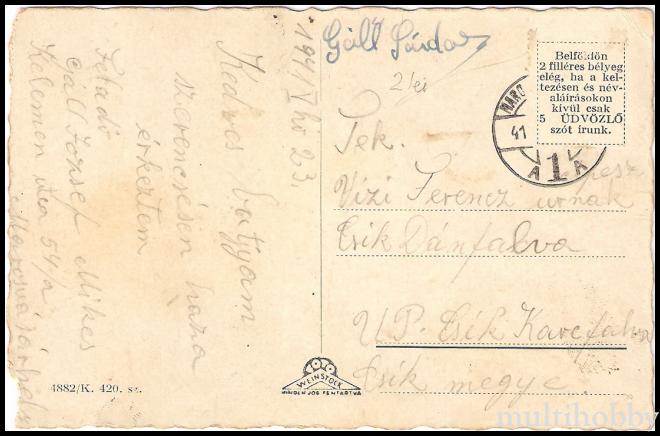 1941 V hó 23
Kedves bátyjam
szerencsésen haza
érkeztem
Feladó
Gáll József Mikes
Kelemen utca 54/a
Marosvásárhely
4882/K. 420. sz.
WEINSTOCK
MINDEN JOG FENTARTVA
Gáll Sándor
2 lei
Belföldön
2 filléres bélyeg
elég, ha a kel-
tezésen és név-
aláírásokon
kívül csak
5 ÜDVÖZLŐ
szót írunk.
MARO
41
A 1 A
Tek.
Vizi Ferencz urnak
Csik Dánfalva
U. P. Csik Karczfalva
Csik megye.
multihobby